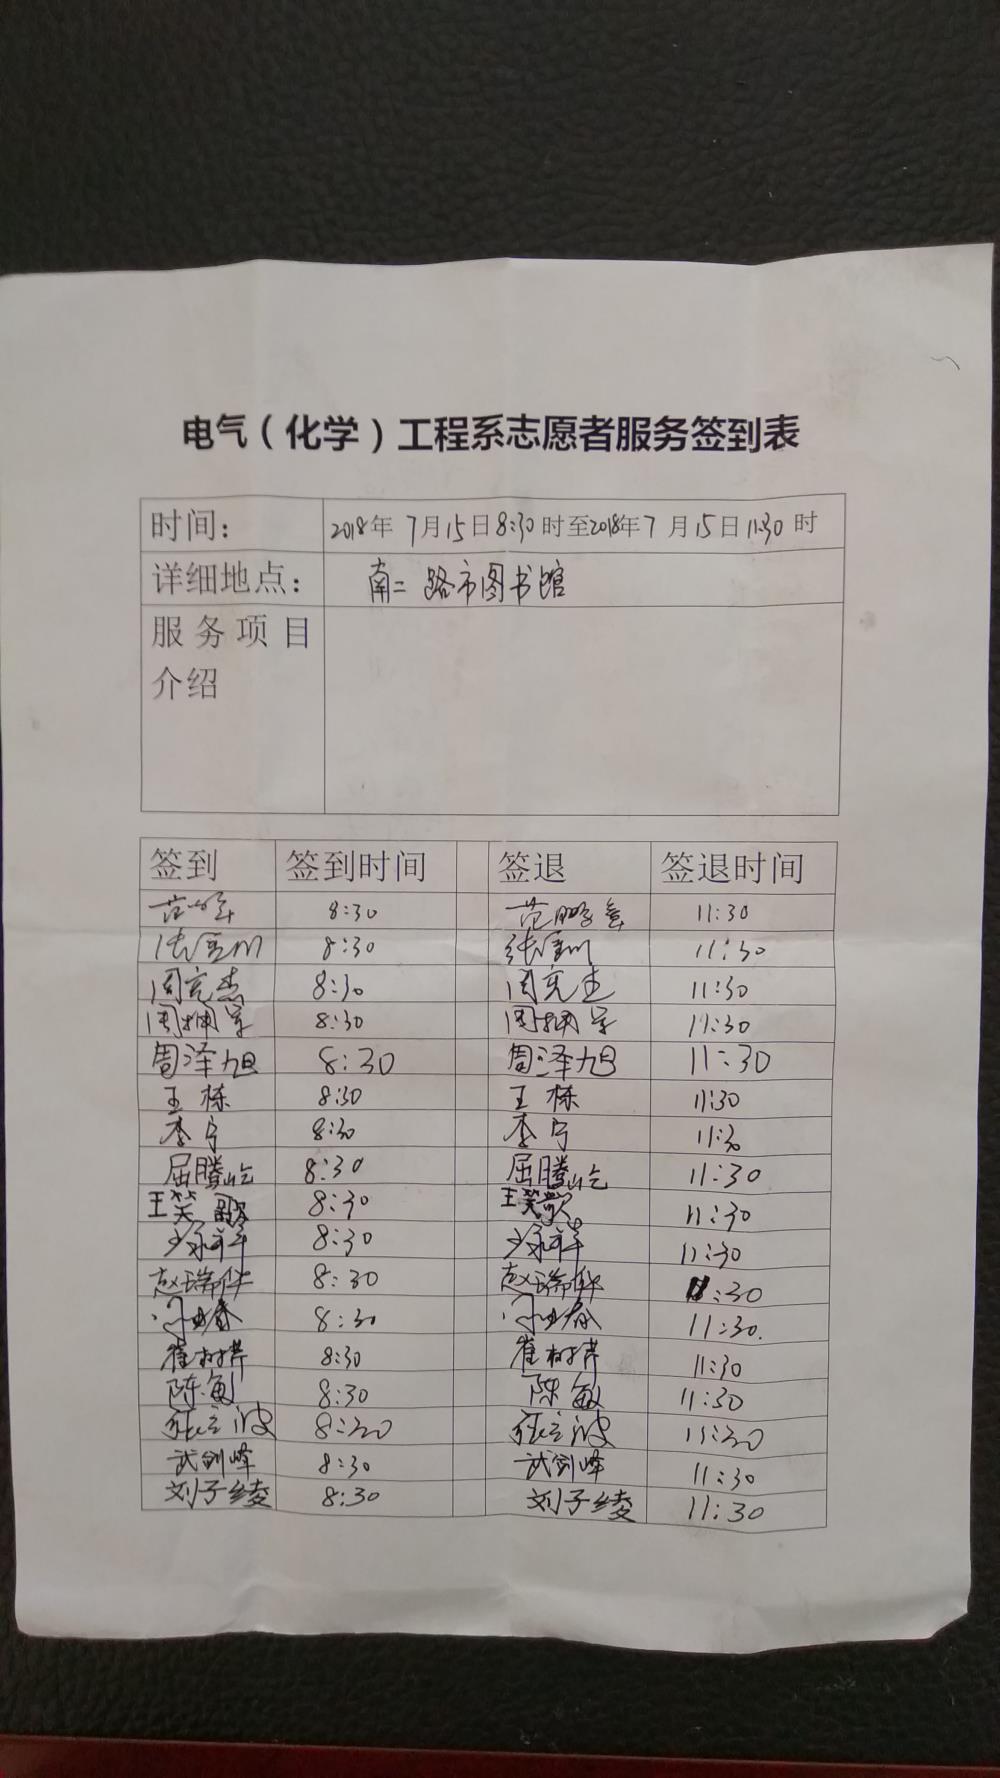 电气（化学）工程系志愿者服务签到表
时间： 2018年 7月15日8:30时至2018年7月15日11:30时
详细地点： 南二路市图书馆
服务项目
介绍
签到 签到时间 签退 签退时间
8:30 范鹏 11:30
8:30 11:30
周克杰 8:30 周克杰 11:30
周 8:30 周 11:30
周泽旭 8:30 周泽旭 11:30
王栋 8:30 王栋 11:30
李宁 8:30 李宁 11:30
屈腾屹 8:30 屈腾屹 11:30
王笑歌 8:30 王笑歌 11:30
8:30 11:30
赵瑞华 8:30 赵瑞华 11:30
8:30 11:30.
崔树 8:30 崔树 11:30
陈敏 8:30 陈敏 11:30
张立波 8:30 张立波 11:30
武剑峰 8:30 武剑峰 11:30
刘子绫 8:30 刘子绫 11:30